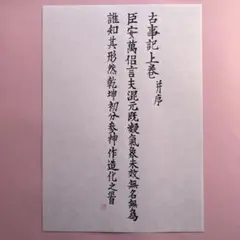 古事記上卷 并序
臣安萬侶言夫混元既凝氣象未效無名無爲
誰知其形然乾坤初分參神作造化之首